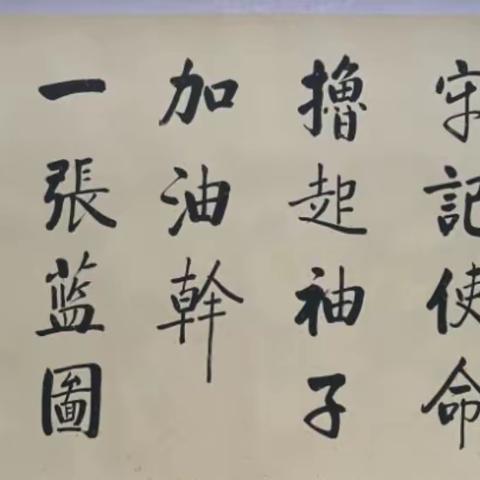 牢记使命
撸起袖子
加油幹
一張蓝圖